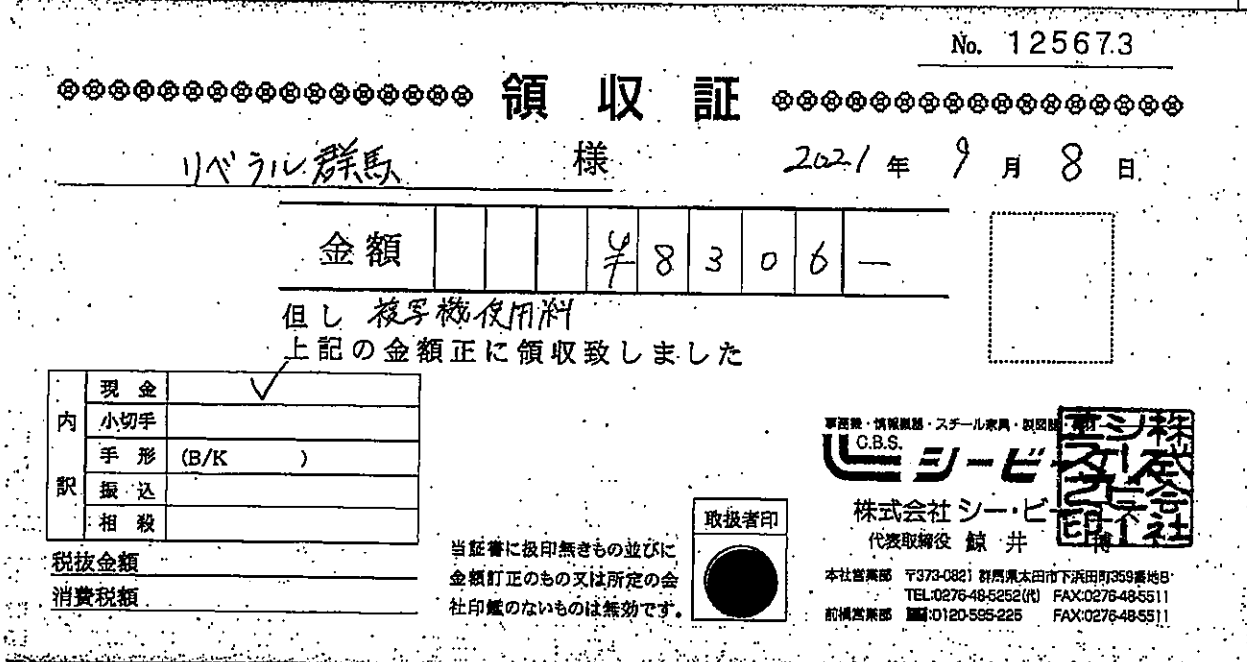 No. 125673
領収証
リベラル群馬 様 2021年 9月 8日
金額 ¥8306—
但し 複写機使用料
上記の金額正に領収致しました
内訳
現金 ✓
小切手
手形 (B/K )
振込
相殺
税抜金額
消費税額
当証書に扱印無きもの並びに
金額訂正のもの又は所定の会
社印鑑のないものは無効です。
取扱者印
事務機・情報機器・スチール家具・製図器
C.B.S.
シービー
株式会社 シー・ビー
代表取締役 鯨井 博
株式会社シービーエス之印
本社営業部 〒373-0821 群馬県太田市下浜田町359番地8
TEL:0276-48-5252(代) FAX:0276-48-5511
前橋営業部 :0120-595-226 FAX:0276-48-5511